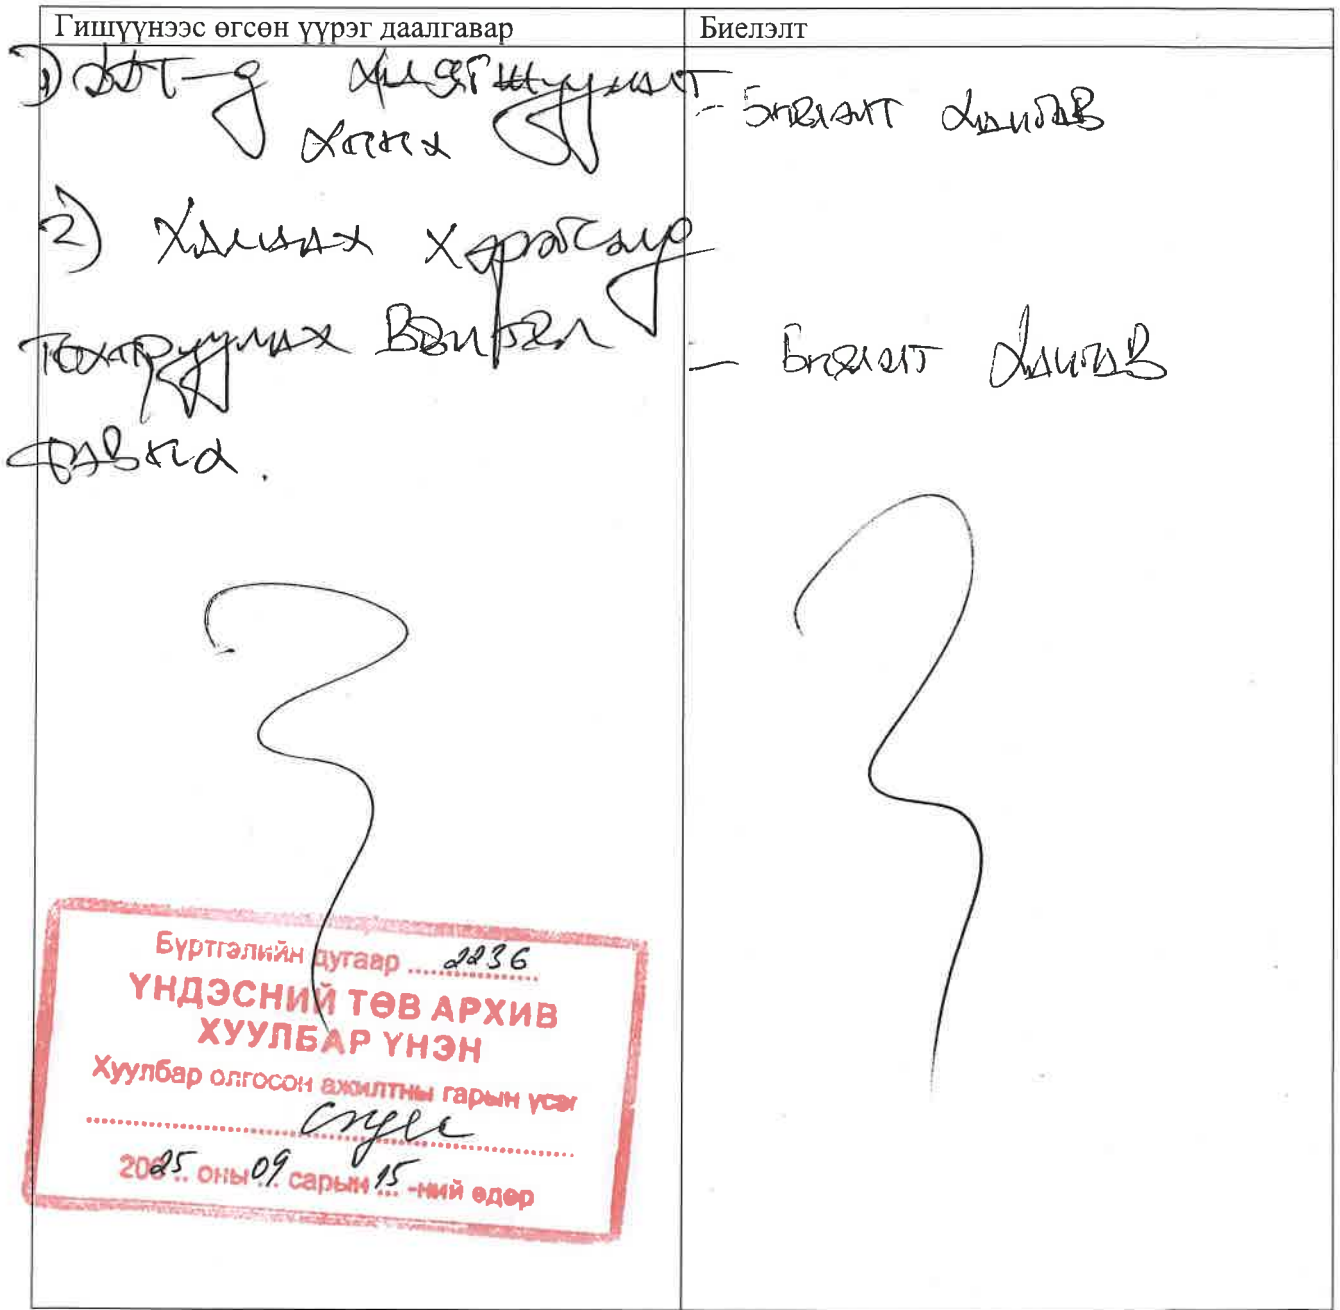 Гишүүнээс өгсөн үүрэг даалгавар
Биелэлт
1) ДДТ-д хяргшуулалт
хийх
- Биелэлт хангав
2) Хамаах хэрэгсэлд
тохируулах
- Биелэлт хангав
авна.
Бүртгэлийн дугаар 2236
ҮНДЭСНИЙ ТӨВ АРХИВ
ХУУЛБАР ҮНЭН
Хуулбар олгосон ажилтны гарын үсэг
2025 оны 09 сарын 15 -ний өдөр